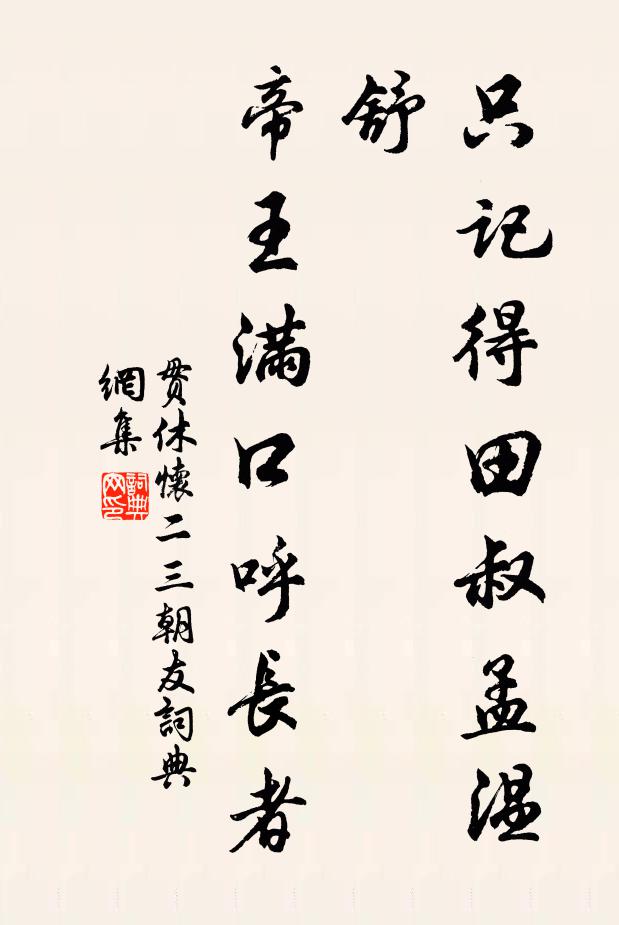 只記得田叔孟温
舒
帝王满口呼長者
貫休懷二三朝友詞典
網集
詞典
网印